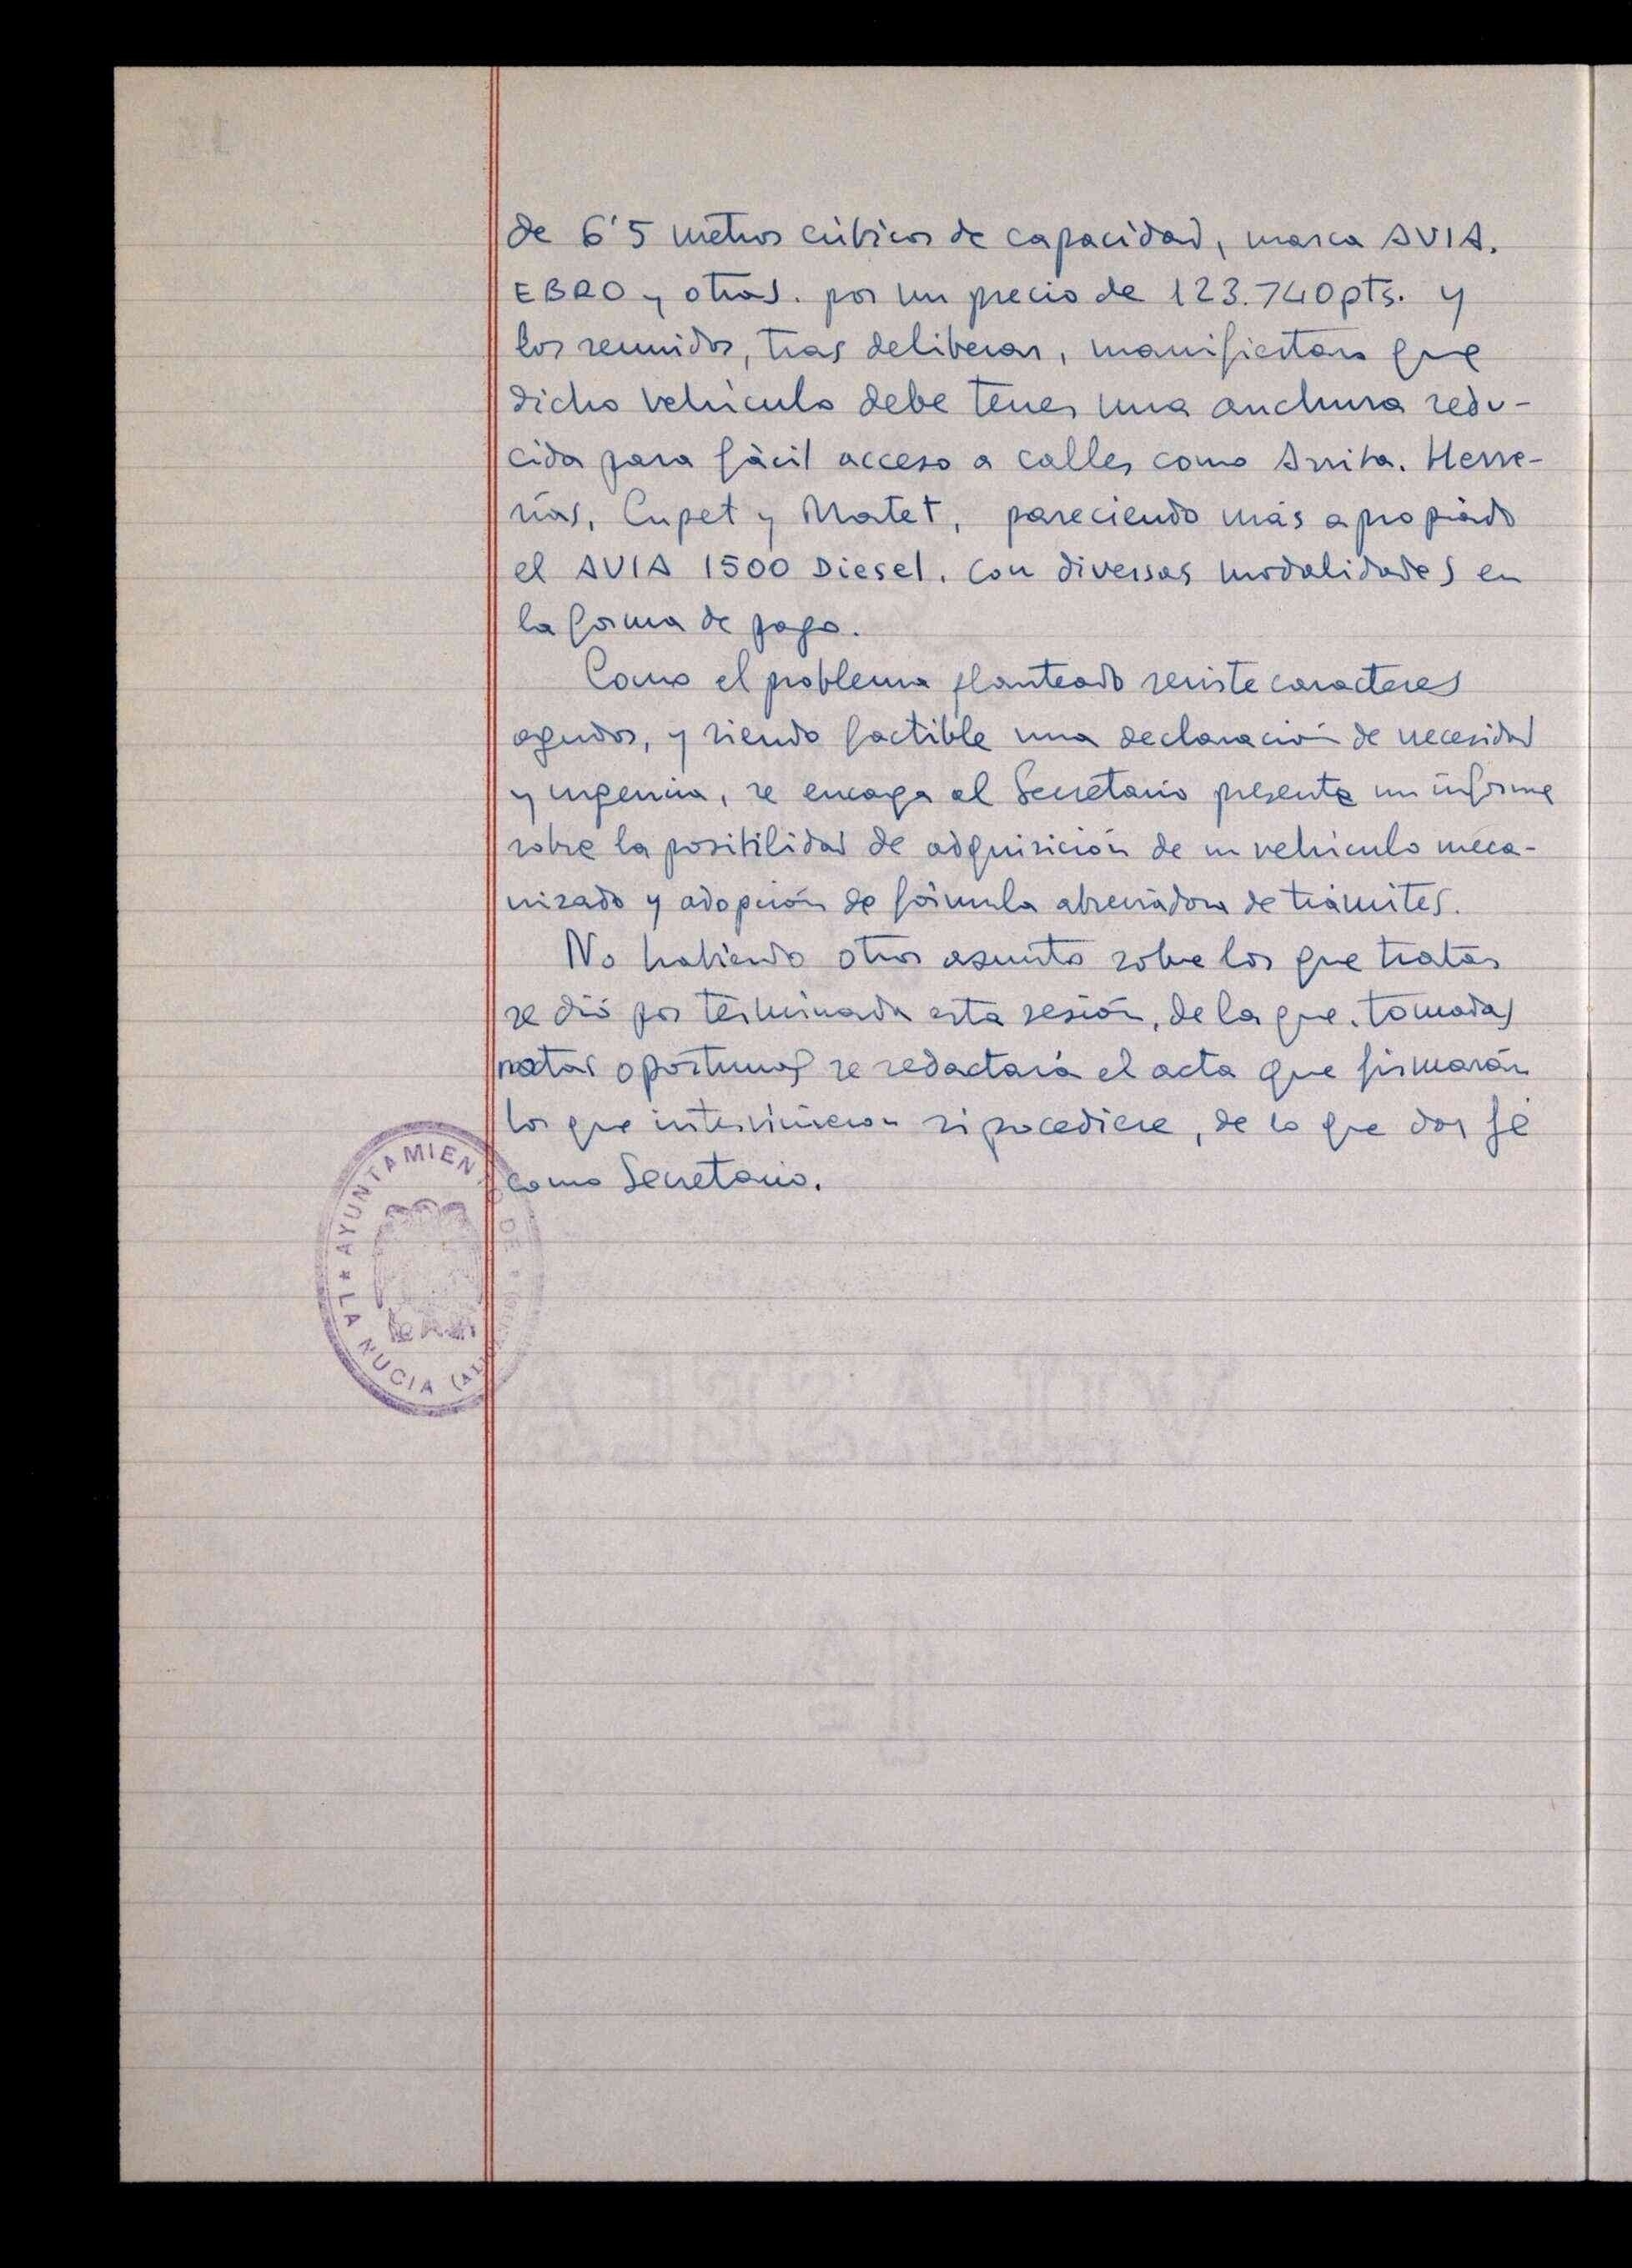 de 6'5 metros cúbicos de capacidad, marca AVIA.
EBRO y otras. por un precio de 123.740 pts. y
los reunidos, tras deliberar, manifiestan que
dicho vehículo debe tener una anchura redu-
cida para fácil acceso a calles como Arriba. Herre-
rías, Cupet y Matet, pareciendo más apropiado
el AVIA 1500 Diesel. con diversas modalidades en
la forma de pago.
Como el problema planteado reviste caracteres
agudos, y siendo factible una declaración de necesidad
y urgencia, se encaga al Secretario presente un informe
sobre la posibilidad de adquisición de un vehículo meca-
nizado y adopción de fórmula abreviadora de trámites.
No habiendo otros asunto sobre los que tratar
se dió por terminada esta sesión, de la que. tomadas
notas oportunas se redactará el acta que firmarán
los que intervinieron si procediere, de lo que doy fé
como Secretario.
* AYUNTAMIENTO DE *
LA NUCIA (ALICANTE)